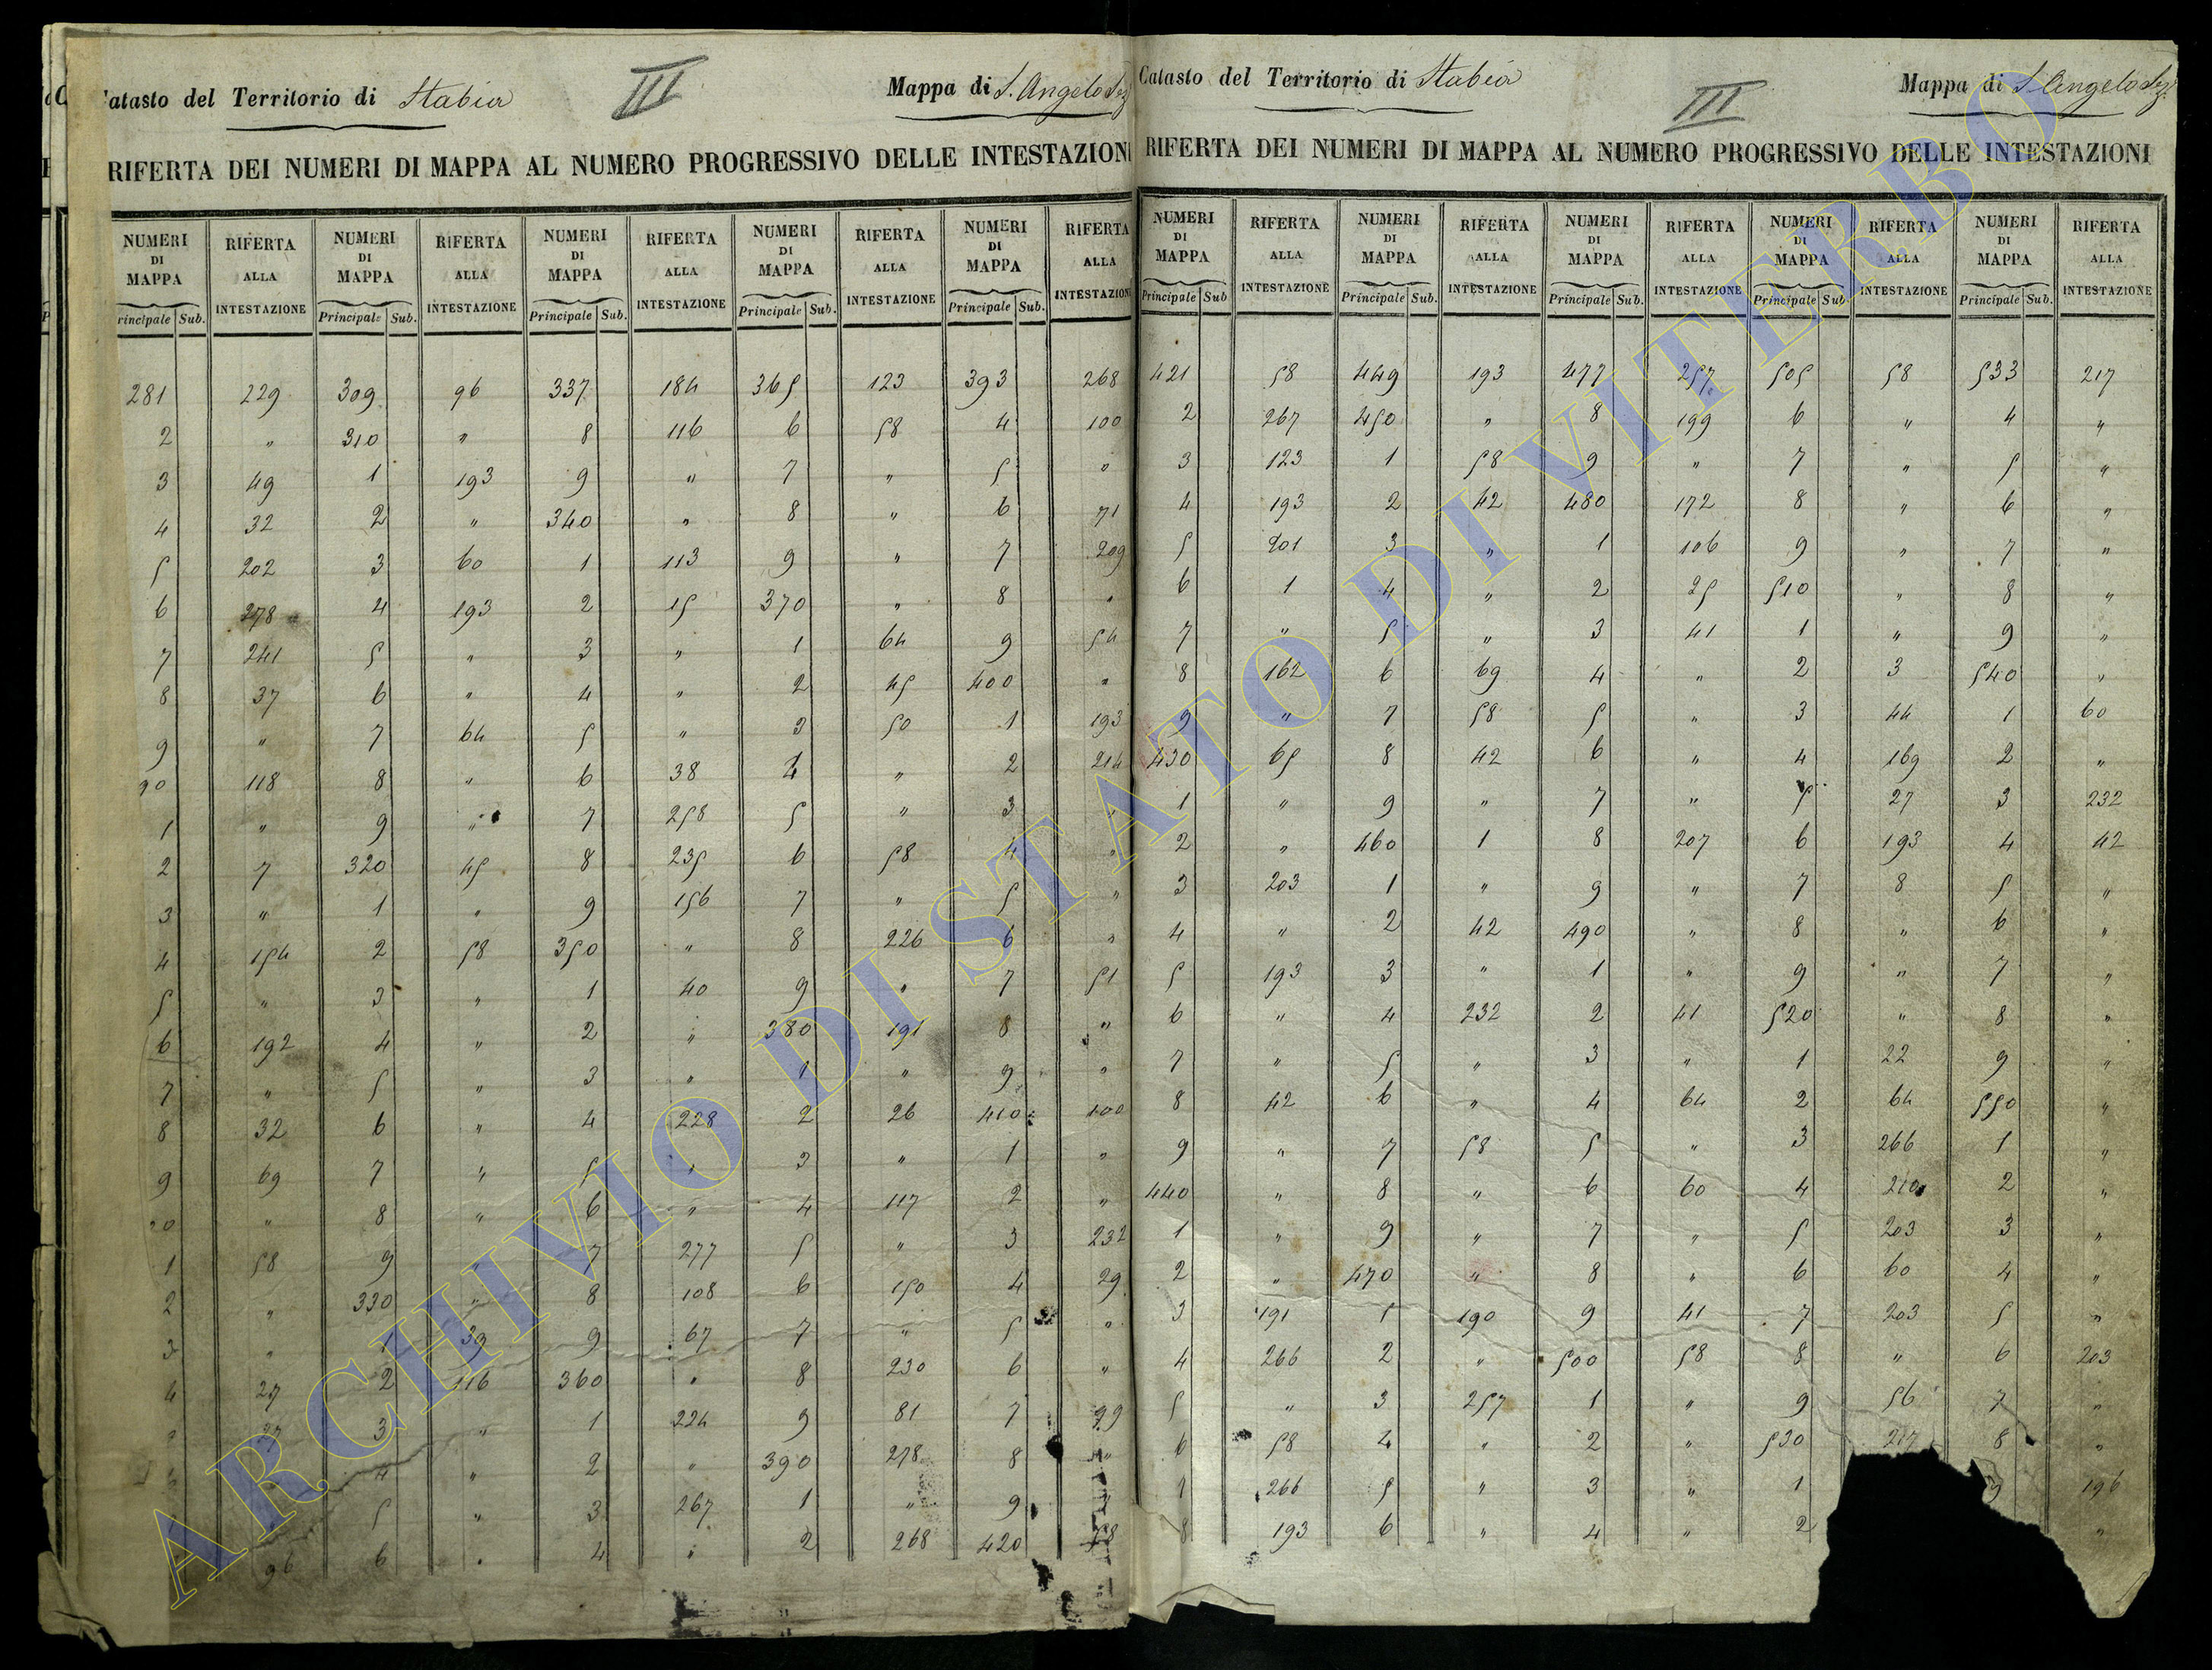 Catasto del Territorio di Stabia III Mappa di S. Angelo Sez
RIFERTA DEI NUMERI DI MAPPA AL NUMERO PROGRESSIVO DELLE INTESTAZIONI
NUMERI DI MAPPA RIFERTA ALLA INTESTAZIONE NUMERI DI MAPPA RIFERTA ALLA INTESTAZIONE NUMERI DI MAPPA RIFERTA ALLA INTESTAZIONE NUMERI DI MAPPA RIFERTA ALLA INTESTAZIONE NUMERI DI MAPPA RIFERTA ALLA INTESTAZIONE
Principale Sub. Principale Sub. Principale Sub. Principale Sub. Principale Sub.
281 229 309 96 337 184 365 123 393 268
2 " 310 " 8 116 6 58 4 100
3 49 1 193 9 " 7 " 5 "
4 32 2 " 340 " 8 " 6 71
5 202 3 60 1 113 9 " 7 209
6 278 4 193 2 15 370 " 8 "
7 241 5 " 3 " 1 64 9 54
8 37 6 " 4 " 2 45 400 "
9 " 7 64 5 " 3 50 1 193
90 118 8 " 6 38 4 " 2 214
1 " 9 " 7 258 5 " 3 "
2 7 320 45 8 235 6 58 4 "
3 " 1 " 9 156 7 " 5 "
4 154 2 58 350 " 8 226 6 "
5 " 3 " 1 40 9 " 7 51
6 192 4 " 2 " 380 191 8 "
7 " 5 " 3 " 1 " 9 "
8 32 6 " 4 228 2 26 410 100
9 69 7 " 5 " 3 " 1 "
" 8 " 6 " 4 117 2 "
1 58 9 " 7 277 5 " 3 232
2 " 330 " 8 108 6 150 4 29
3 " 1 39 9 67 7 " 5 "
4 27 2 116 360 " 8 230 6 "
27 3 " 1 224 9 81 7 99
4 " 2 " 390 278 8 "
5 " 3 267 1 " 9 "
96 6 " 4 " 2 268 420 58
Catasto del Territorio di Stabia III Mappa di S. Angelo Sez.
RIFERTA DEI NUMERI DI MAPPA AL NUMERO PROGRESSIVO DELLE INTESTAZIONI
NUMERI DI MAPPA RIFERTA ALLA INTESTAZIONE NUMERI DI MAPPA RIFERTA ALLA INTESTAZIONE NUMERI DI MAPPA RIFERTA ALLA INTESTAZIONE NUMERI DI MAPPA RIFERTA ALLA INTESTAZIONE NUMERI DI MAPPA RIFERTA ALLA INTESTAZIONE
Principale Sub Principale Sub. Principale Sub. Principale Sub Principale Sub.
421 58 449 193 477 257 505 58 533 217
2 267 450 " 8 199 6 " 4 "
3 123 1 58 9 " 7 " 5 "
4 193 2 42 480 172 8 " 6 "
5 201 3 " 1 106 9 " 7 "
6 1 4 " 2 25 510 " 8 "
7 " 5 " 3 41 1 " 9 "
8 162 6 69 4 " 2 3 540 "
9 " 7 58 5 " 3 44 1 60
430 65 8 42 6 " 4 169 2 "
1 " 9 " 7 " 5 27 3 232
2 " 460 1 8 207 6 193 4 42
3 203 1 " 9 " 7 8 5 "
4 " 2 42 490 " 8 " 6 "
5 193 3 " 1 " 9 " 7 "
6 " 4 232 2 41 520 " 8 "
7 " 5 " 3 " 1 22 9 "
8 42 6 " 4 64 2 64 550 "
9 " 7 58 5 " 3 266 1 "
440 " 8 " 6 60 4 210 2 "
1 " 9 " 7 " 5 203 3 "
2 " 470 " 8 " 6 60 4 "
3 191 1 190 9 41 7 203 5 "
4 266 2 " 500 58 8 " 6 203
5 " 3 257 1 " 9 56 7 "
6 58 4 " 2 " 530 217 8 "
7 266 5 " 3 " 1 9 196
8 193 6 " 4 " 2 "
ARCHIVIO DI STATO DI VITERBO